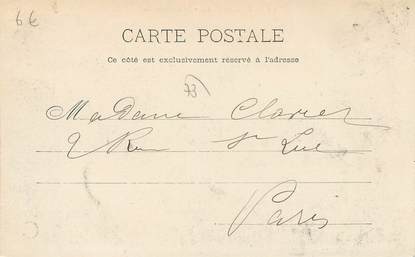 6€
CARTE POSTALE
Ce côté est exclusivement réservé à l'adresse
73)
Madame
2 Rue St Luc
Paris